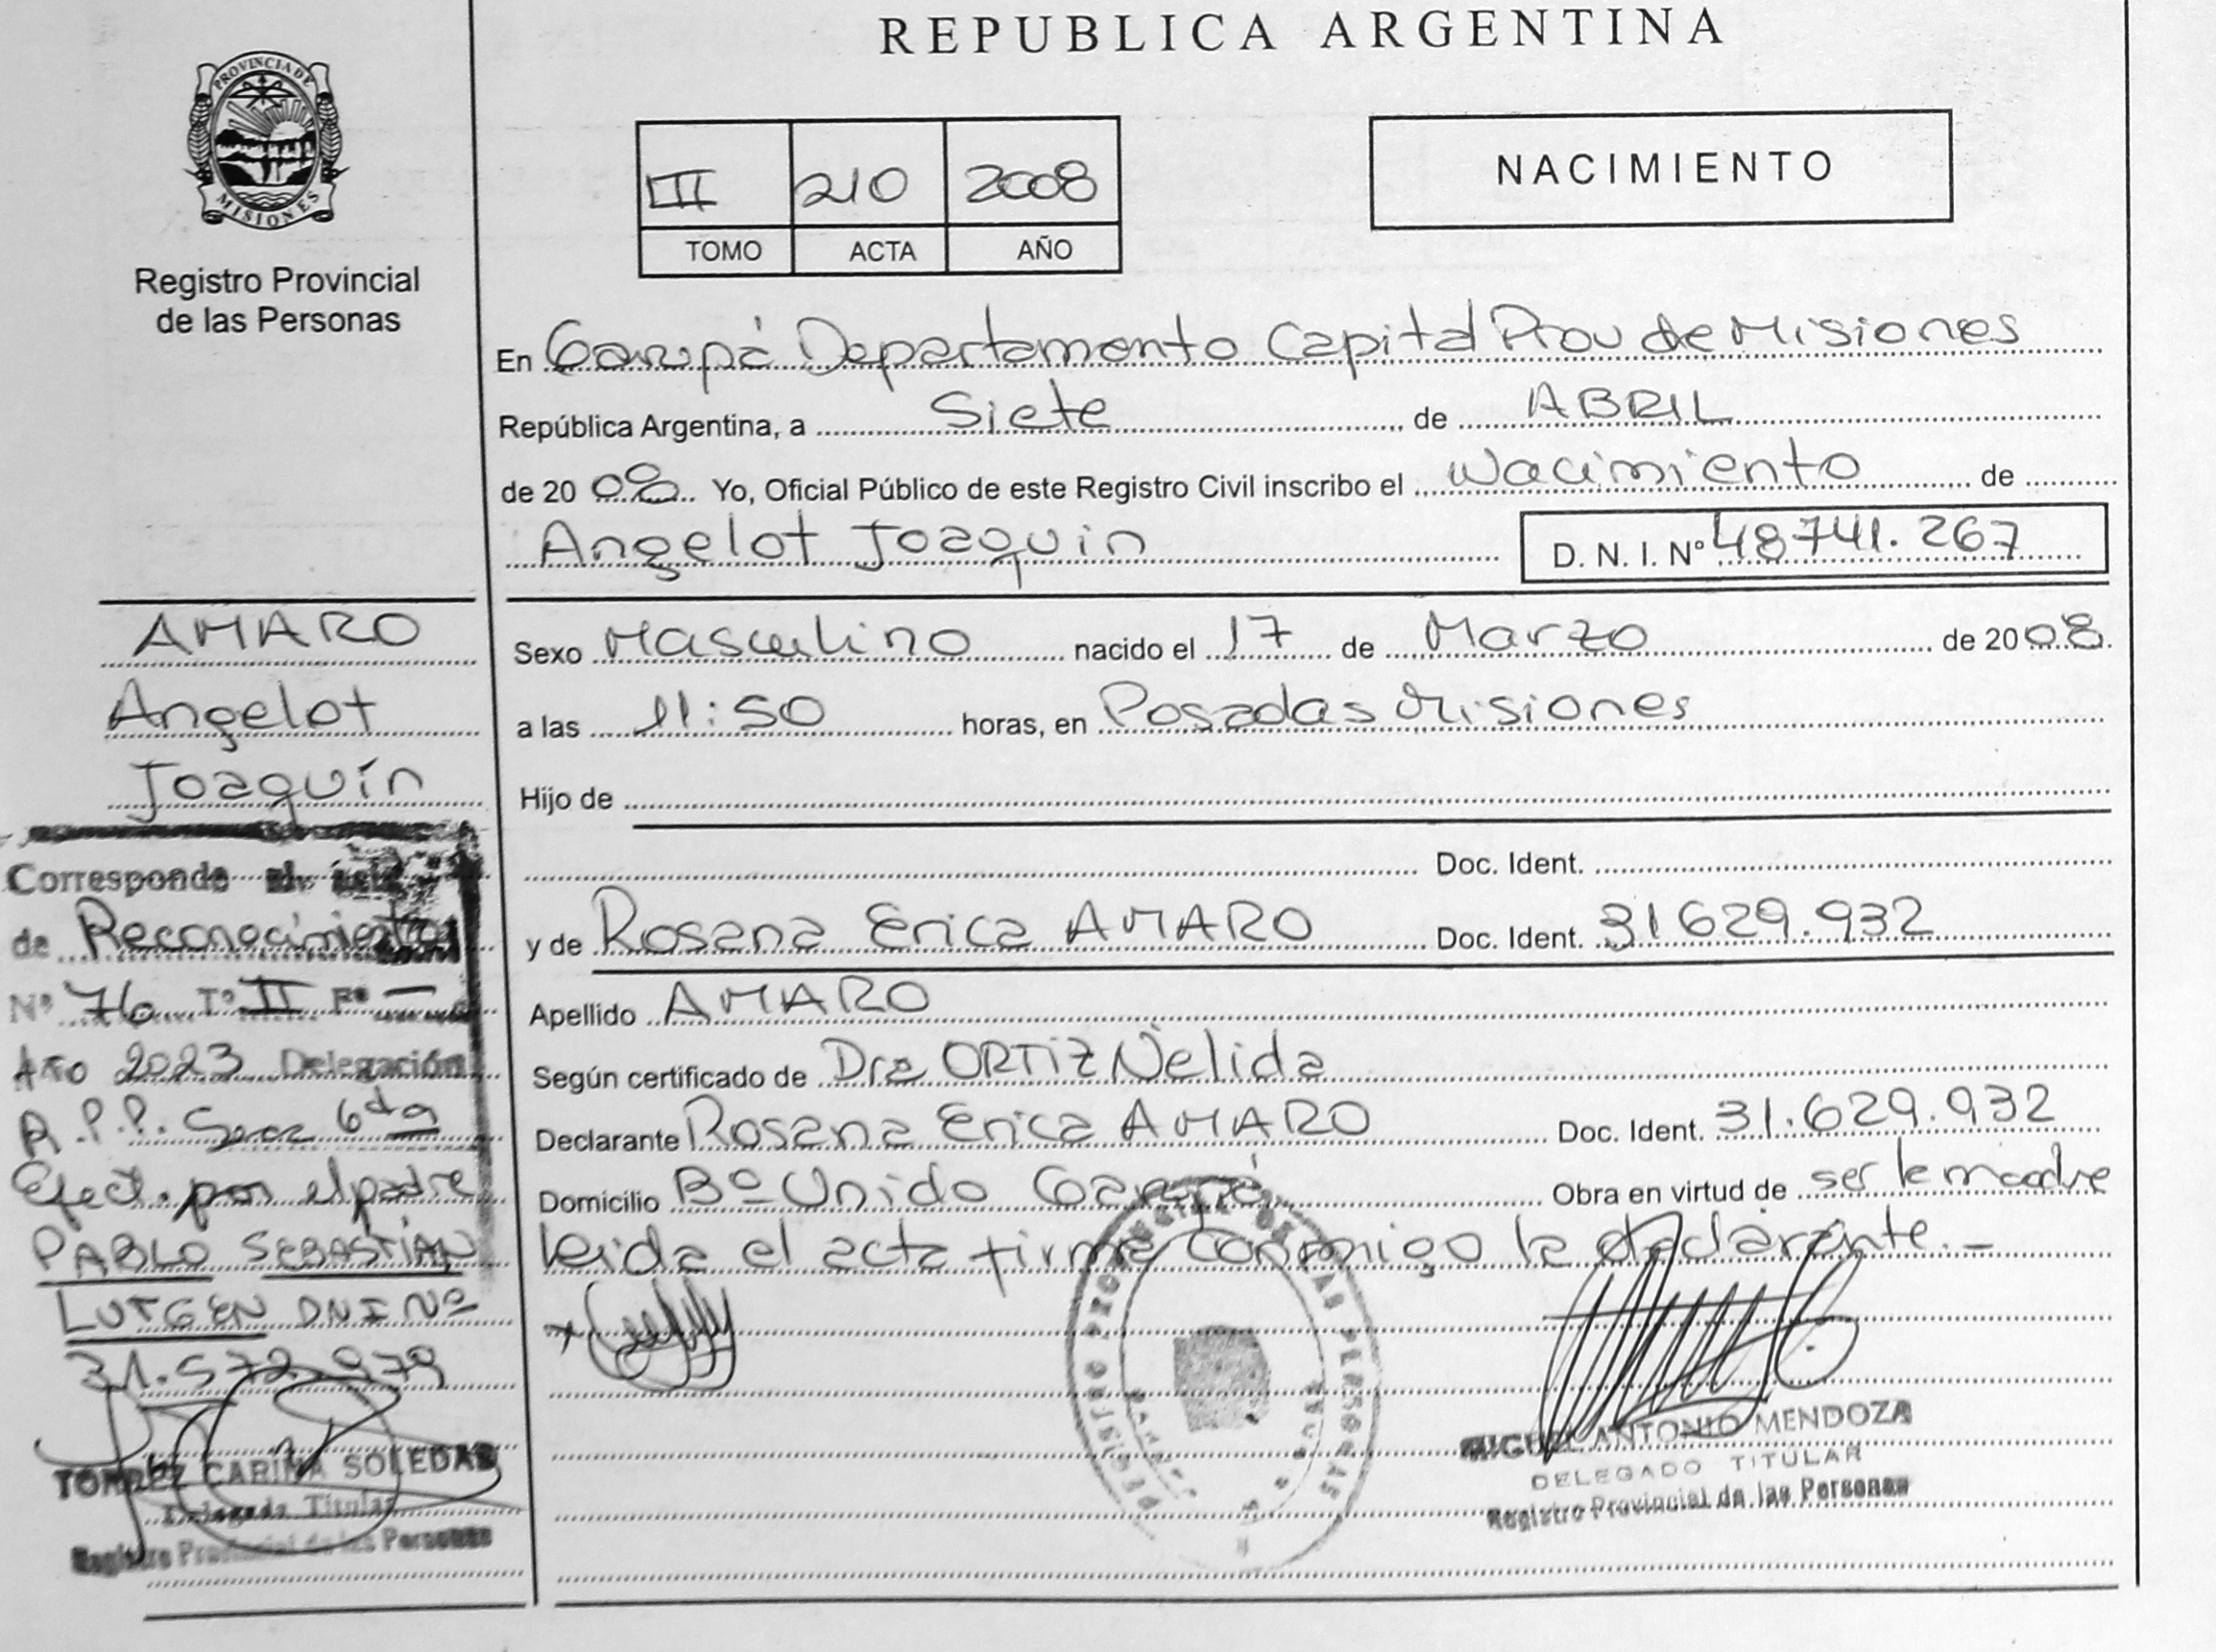 REPUBLICA ARGENTINA
PROVINCIA DE
MISIONES
Registro Provincial
de las Personas
III 210 2008
TOMO ACTA AÑO
NACIMIENTO
En Garupá Departamento Capital Prov de Misiones
República Argentina, a Siete de ABRIL
de 20 08 Yo, Oficial Público de este Registro Civil inscribo el Nacimiento de
Angelot Joaquin D. N. I. Nº 48741.267
Sexo Masculino nacido el 17 de Marzo de 20 08
a las 11:50 horas, en Posadas Misiones
Hijo de
Doc. Ident.
y de Rosana Erica AMARO Doc. Ident. 31629.932
Apellido AMARO
Según certificado de Dra ORTIZ Nelida
Declarante Rosana Erica AMARO Doc. Ident. 31.629.932
Domicilio Bº Unido Garupá Obra en virtud de ser la madre
leida el acta firma conmigo la declarante.-
MIGUEL ANTONIO MENDOZA
DELEGADO TITULAR
Registro Provincial de las Personas
AMARO
Angelot
Joaquín
Corresponde
de Reconocimiento
Nº 76 Tº II Fº —
Año 2023 Delegación
Secc 6ta
Efect. por el padre
PABLO SEBASTIAN
LUTGEN DNI Nº
31.572.979
TORREZ CARINA SOLEDAD
Delegada Titular
Registro Provincial de las Personas